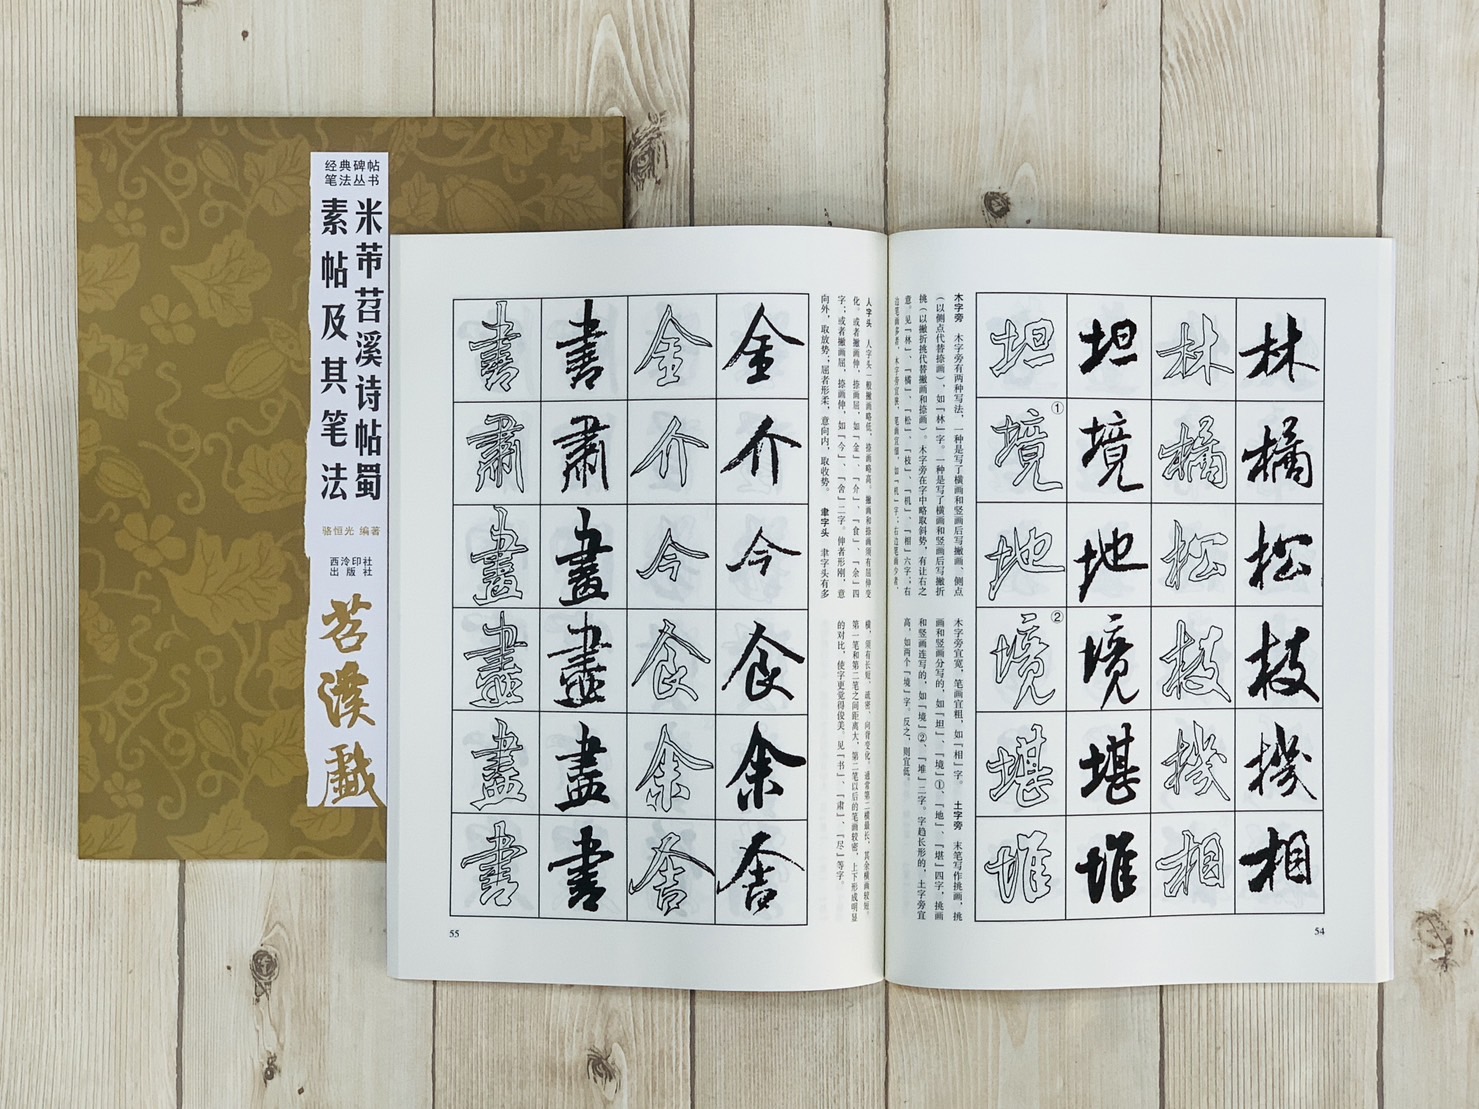 经典碑帖
笔法丛书
米芾苕溪诗帖蜀
素帖及其笔法
骆恒光 编著
西泠印社
出版社
苕溪戲
林 林 坦 坦
橘 橘 境 境①
松 松 地 地
枝 枝 境 境②
機 機 堪 堪
相 相 堆 堆
木字旁 木字旁有两种写法，一种是写了横画和竖画后写撇画、侧点
（以侧点代替捺画），如「林」字。一种是写了横画和竖画后写撇折
挑（以撇折挑代替撇画和捺画）。木字旁在字中略取斜势，有让右之
意。见「林」、「橘」、「松」、「枝」、「机」、「相」六字；右
边笔画多者，木字旁宜狭，笔画宜细，如「机」字；右边笔画少者，
木字旁宜宽，笔画宜粗，如「相」字。 土字旁 末笔写作挑画，挑
画和竖画分写的，如「坦」、「境」①、「地」、「堪」四字，挑画
和竖画连写的，如「境」②、「堆」二字。字趋长形的，土字旁宜
高，如两个「境」字。反之，则宜低。
54
人字头 人字头一般撇画略低，捺画略高。撇画和捺画须有屈伸变
化。或者撇画伸，捺画屈，如「金」、「介」、「食」、「余」四
字；或者撇画屈，捺画伸，如「今」、「舍」二字。伸者形刚，意
向外，取放势；屈者形柔，意向内，取收势。 聿字头 聿字头有多
横，须有长短、疏密、向背变化。通常第二横最长，其余横画较短。
第一笔和第二笔之间距离大，第二笔以后的笔画较密，上下形成明显
的对比，使字更觉得俊美。见「书」、「肃」、「尽」等字。
金 金 書 書
介 介 肅 肅
今 今 畫 畫
食 食 盡 盡
余 余 盡 盡
舍 舍 書 書
55